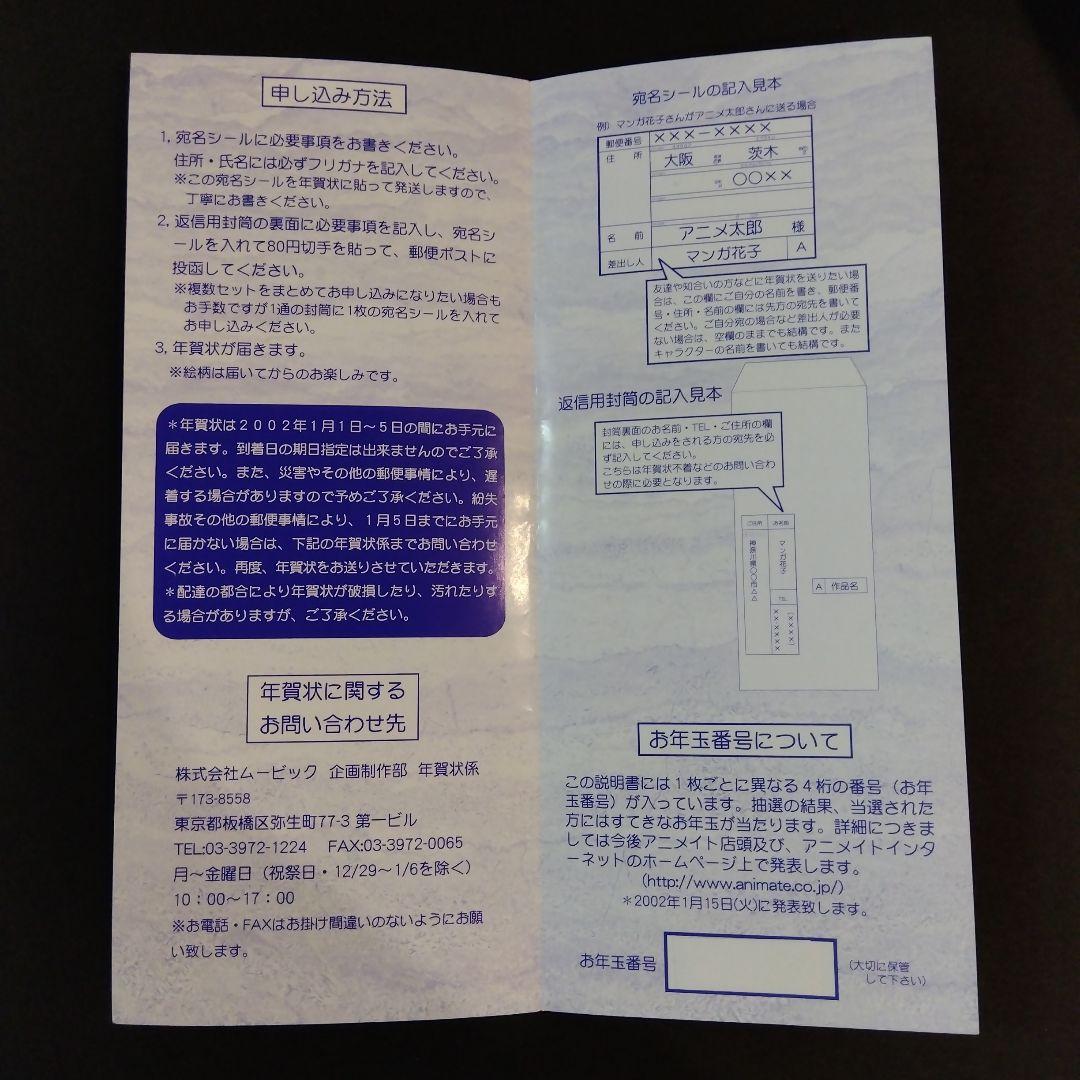 申し込み方法
1. 宛名シールに必要事項をお書きください。
住所・氏名には必ずフリガナを記入してください。
※この宛名シールを年賀状に貼って発送しますので、
丁寧にお書きください。
2. 返信用封筒の裏面に必要事項を記入し、宛名シ
ールを入れて80円切手を貼って、郵便ポストに
投函してください。
※複数セットをまとめてお申し込みになりたい場合も
お手数ですが1通の封筒に1枚の宛名シールを入れて
お申し込みください。
3. 年賀状が届きます。
※絵柄は届いてからのお楽しみです。
＊年賀状は２００２年１月１日～５日の間にお手元に
届きます。到着日の期日指定は出来ませんのでご了承
ください。また、災害やその他の郵便事情により、遅
着する場合がありますので予めご了承ください。紛失
事故その他の郵便事情により、１月５日までにお手元
に届かない場合は、下記の年賀状係までお問い合わせ
ください。再度、年賀状をお送りさせていただきます。
＊配達の都合により年賀状が破損したり、汚れたりす
る場合がありますが、ご了承ください。
年賀状に関する
お問い合わせ先
株式会社ムービック 企画制作部 年賀状係
〒173-8558
東京都板橋区弥生町77-3 第一ビル
TEL:03-3972-1224 FAX:03-3972-0065
月～金曜日（祝祭日・12/29～1/6を除く）
10：00～17：00
※お電話・FAXはお掛け間違いのないようにお願
い致します。
宛名シールの記入見本
例）マンガ花子さんがアニメ太郎さんに送る場合
郵便番号 ×××－××××
住 所 大阪 茨木
〇〇××
名 前 アニメ太郎 様
差出し人 マンガ花子 A
友達や知合いの方などに年賀状を送りたい場
合は、この欄にご自分の名前を書き、郵便番
号・住所・名前の欄には先方の宛先を書いて
ください。ご自分宛の場合など差出人が必要
ない場合は、空欄のままでも結構です。また
キャラクターの名前を書いても結構です。
返信用封筒の記入見本
封筒裏面のお名前・TEL・ご住所の欄
には、申し込みをされる方の宛先を必
ず記入してください。
こちらは年賀状不着などのお問い合わ
せの際に必要となります。
ご住所 お名前
神奈川県〇〇市△△
マンガ花子
TEL
(××××)
××××××
A 作品名
お年玉番号について
この説明書には１枚ごとに異なる４桁の番号（お年
玉番号）が入っています。抽選の結果、当選された
方にはすてきなお年玉が当たります。詳細につきま
しては今後アニメイト店頭及び、アニメイトインタ
ーネットのホームページ上で発表します。
(http://www.animate.co.jp/)
＊2002年1月15日(火)に発表致します。
お年玉番号
（大切に保管
して下さい）